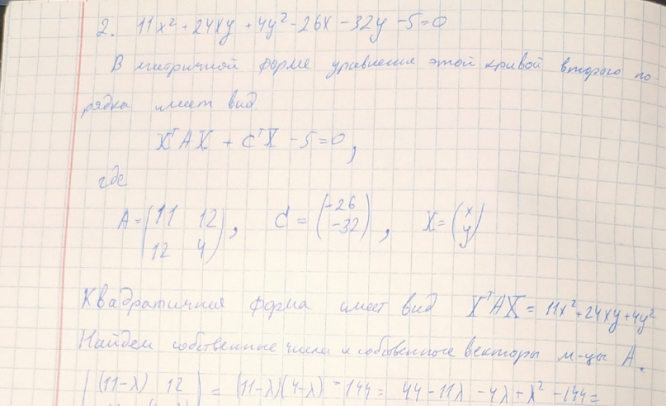 2. 11x² + 24xy + 4y² - 26x - 32y - 5 = 0
В матричной форме уравнения этой кривой второго по
рядка имеет вид
XᵀAX + CᵀX - 5 = 0,
где
A = (11 12; 12 4), C = (-26; -32), X = (x; y)
Квадратичная форма имеет вид XᵀAX = 11x² + 24xy + 4y²
Найдем собственные числа и собственные векторы м-цы A.
|(11-λ) 12| = (11-λ)(4-λ) - 144 = 44 - 11λ - 4λ + λ² - 144 =